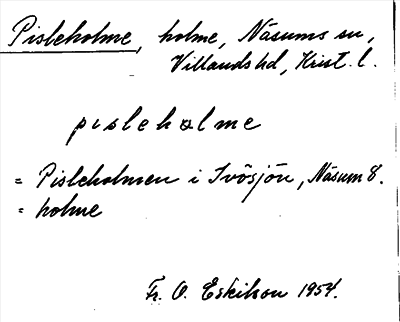 Pisleholme, holme, Näsums sn,
Villands hd, Krist. l.
pisleholme
= Pisleholmen i Ivösjön, Näsum 8.
= holme
Fr. O. Eskilson 1954.